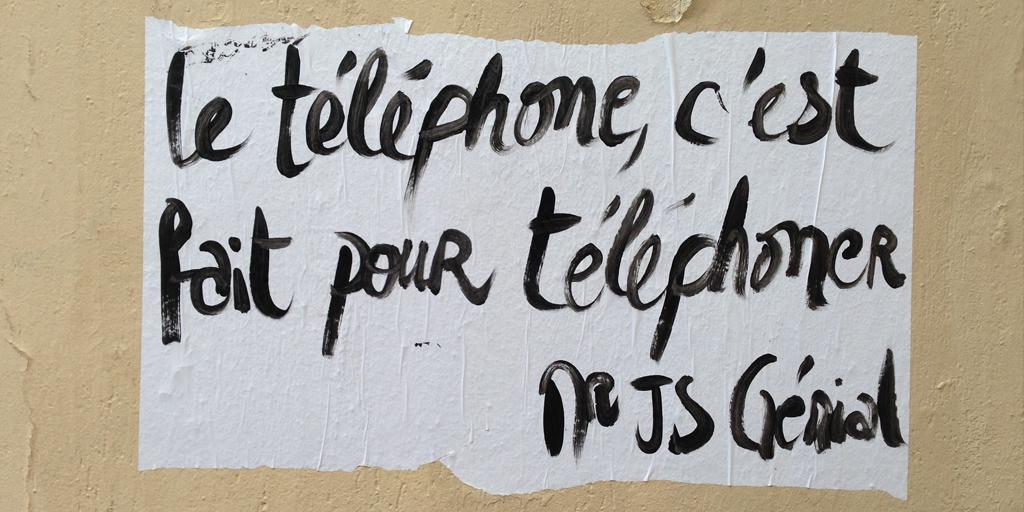 le téléphone, c'est
fait pour téléphoner
Mr JS Génial